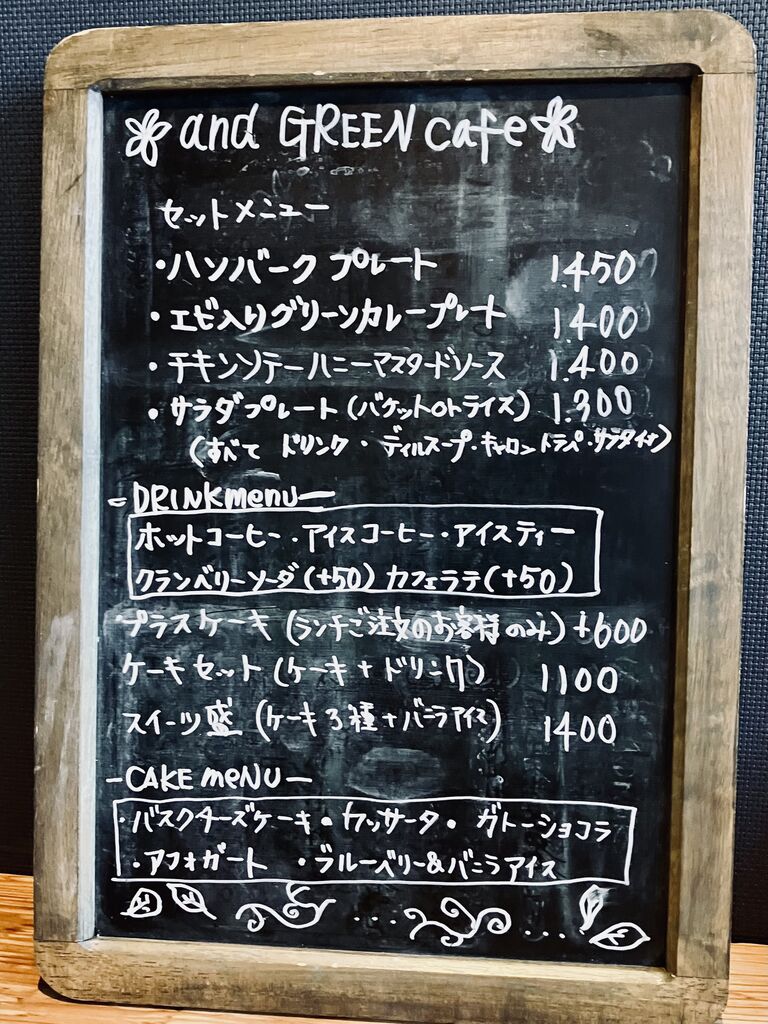 and GREEN cafe
セットメニュー
・ハンバーグ プレート 1.450
・エビ入りグリーンカレープレート 1.400
・チキンソテーハニーマスタードソース 1.400
・サラダプレート(バケットorライス) 1.300
(すべて ドリンク・ディルスープ・キャロットラペ・サラダ付)
-DRINK menu-
ホットコーヒー・アイスコーヒー・アイスティー
クランベリーソーダ(+50) カフェラテ(+50)
プラスケーキ(ランチご注文のお客様のみ)+600
ケーキセット(ケーキ+ドリンク) 1100
スイーツ盛(ケーキ3種+バニラアイス) 1400
-CAKE meNU-
・バスクチーズケーキ・カッサータ・ガトーショコラ
・アフォガート ・ブルーベリー&バニラアイス